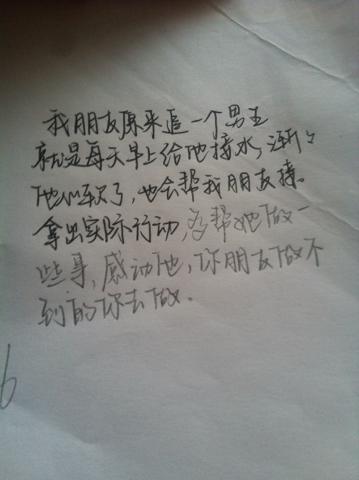 我朋友原来追一个男生
就是每天早上给他接水，渐々
他心软了，也会帮我朋友接。
拿出实际行动，多帮她做一
些事，感动他，你朋友做不
到的你去做.
6